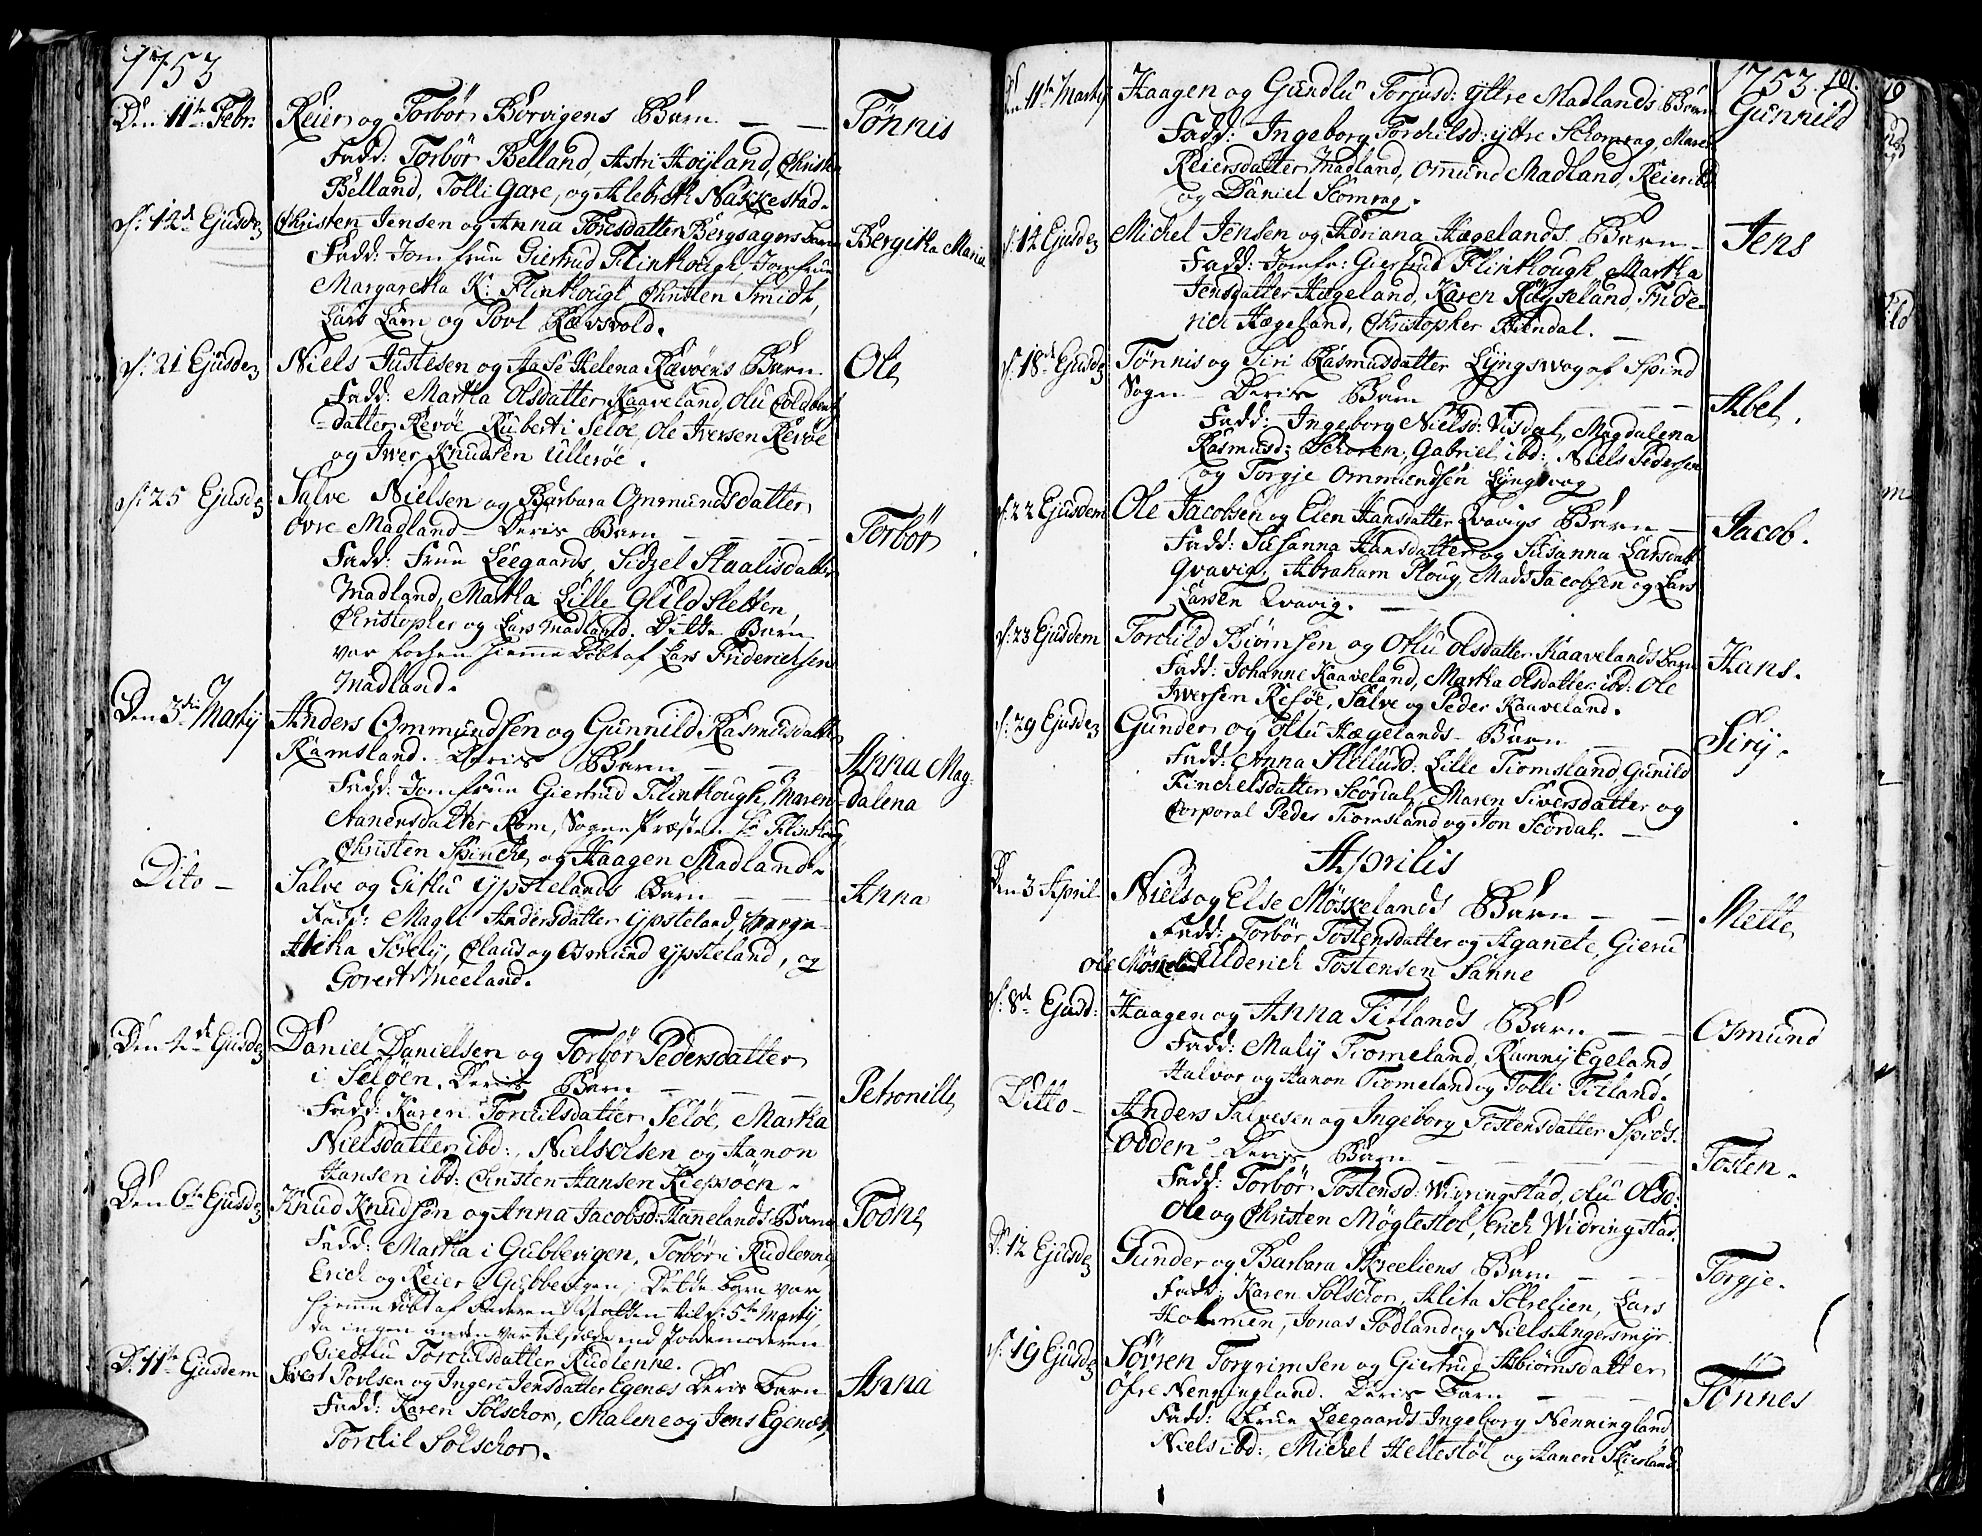 1753
Den 11te Febr. Reier og Torbør Borvigens Barn — — Tönnis
Fadd: Torbør Belland, Astri Høyland, Christen
Belland, Tolli Gare, og Alebeth Nakkestad.
d: 14de Ejusdem Christen Jensen og Anna Toresdatter Bergsagers barn Bergitha Maria
Fadd: Jomfrue Giertrud Flinthough, Jomfrue
Margaretha K: Flinthough, Christen Smidt,
Lars Lam og Povl Rævsvold.
d: 21 Ejusdem Niels Justesen og Aase Helena Rævøens Barn. Ole
Fadd: Martha Olsdatter Kaaveland, Olu Coldbents
datter Revöe, Rubert i Seløe, Ole Iversen Revöe
og Iwer Knudsen Ulleröe.
d: 25 Ejusdem Salve Nielsen og Barbara Ommundsdatter
övre Madland — Deris Barn — — — Torbør
Fadd: Frue Leegaards, Sidzel Staalisdatter
Madland, Martha Lille Glildsletten,
Christopher og Lars Madland. Dette Barn
var forhen hjemme döbt af Lars Friderichsen
Madland.
Den 3die Martij Anders Ommundsen og Gunnild Rasmusdatter
Ramsland. Deris Barn — — Anna Mag-
Fadd: Jomfrue Giertrud Flinthough, Maren dalena
Aanensdatter Rom, Sogne Præsten Hr Flinthoug,
Christen Spinche og Haagen Madland.
Dito — Salve og Gitlu Ypstelands Barn — — — Anna
Fadd: Magli Andersdatter Ypsteland, Marga-
Aletha Sirely, Claus og Osmund Ypsteland, og
Govert Meeland.
Den 4de Ejusdem Daniel Danielsen og Torbør Pedersdatter
i Selöen. Deris Barn — — — Petronille
Fadd: Karen Torchilsdatter Selöe, Martha
Nielsdatter ibd:, Niels Olsen og Hanon
Hansen ibd: Christen Hansen Kiepsöen.
Den 6te Ejusdem Knud Knudsen og Anna Jacobsd: Hanelands Barn Todne
Fadd: Martha i Gubbevigen, Torbør i Rudlenne
Erich og Reier i Gubbevigen; Dette barn var
hjemme döbt af Faderen Natten til d: 5te Martij,
da ingen anden var tilstæde end Jordemoderen
Siedtru Torchilsdatter Rudlenne.
D: 11te Ejusdem Sivert Povlsen og Ingeri Jensdatter Egenæs Deris barn Anna
Fadd: Karen Solschor, Malene og Jens Egenæs,
Torchil Solschor.
1753. 101.
Den 11te Martij Haagen og Gundlu Torjusd: yttre Madlands Barn Gunnild
Fadd: Ingeborg Torchilsd: yttre Schomrag, Maren
Reiersdatter Madland, Ommund Madland, Reier ibd
og Daniel Scomrag.
d: 14 Ejusdem Michel Jensen og Adriana Hægelands Barn — Jens
Fadd: Jomfr: Giertrud Flinthough, Martha
Jensdatter Hægeland, Karen Røyseland, Fride-
rich Hægeland, Christopher Birendal. —
d: 18de Ejusdem Tönnis og Siri Rasmusdatter Lyngswog af Spind
Sogn — Deris Barn — — — Abel.
Fadd: Ingeborg Nielsd: Visdal, Magdalena
Rasmusd: Schoren, Gabriel ibd: Niels Pedersen
og Torgje Ommundsen Lyngsvog
d: 22 Ejusdem Ole Jacobsen og Elen Hansdatter Qvavigs Barn — Jacob.
Fadd: Susanna Hansdatter og Susanna Larsdatt:
Qvavig, Abraham Ploug, Mads Jacobsen og Lars
Larsen Qvavig. —
d: 23 Ejusdem Torchild Biörnsen og Ollu Olsdatter Kaavelands barn Hans.
Fadd: Johanne Kaaveland, Martha Olsdatter ibd: Ole
Iwersen Resöe, Salve og Peder Kaaveland.
d: 29 Ejusdem Gunder og Ollu Hægelands — Barn — Sirij.
Fadd: Anna Stellusd: Lille Tiomsland, Gunild
Finchelsdatter Scordal, Maren Siversdatter og
Corporal Peder Tiomsland og Jon Scordal. —
Aprilis
Den 3 April Niels og Else Møskelands Barn — — Mette
Fadd: Torbør Tostensdatter og Aganete, Gieru
Ole Møskeland Ulderich Tostensen Sanne
d: 8de Ejusd: Haagen og Anna Titlands Barn — — Osmund
Fadd: Malij Tiomeland, Rannij Egeland,
Halvor og Hanon Tiomeland og Tolli Titland.
Ditto — Anders Salvesen og Ingeborg Tostensdatter Spids-
odden — Deris Barn — — — — Tosten.
Fadd: Torbør Tostensd: Widringstad, Olu Olsd:
Ole og Christen Møglestol, Erich Widringstad.
D: 12 Ejusdem Gunder og Barbara Skreeliens Barn — — Torgje.
Fadd: Karen Solschor, Alita Screlien, Lars
Holmen, Jonas Rodland og Niels Angersmyr.
d: 19 Ejusdem Sövren Torgrimsen og Giertrud Asbiörnsdatter
Öfre Nenningland. Deris Barn — — Tönnes
Fadd: Frue Leegaards, Ingeborg Nenningland
Niels ibd:, Michel Hellestöl og Hanen Skiesland.